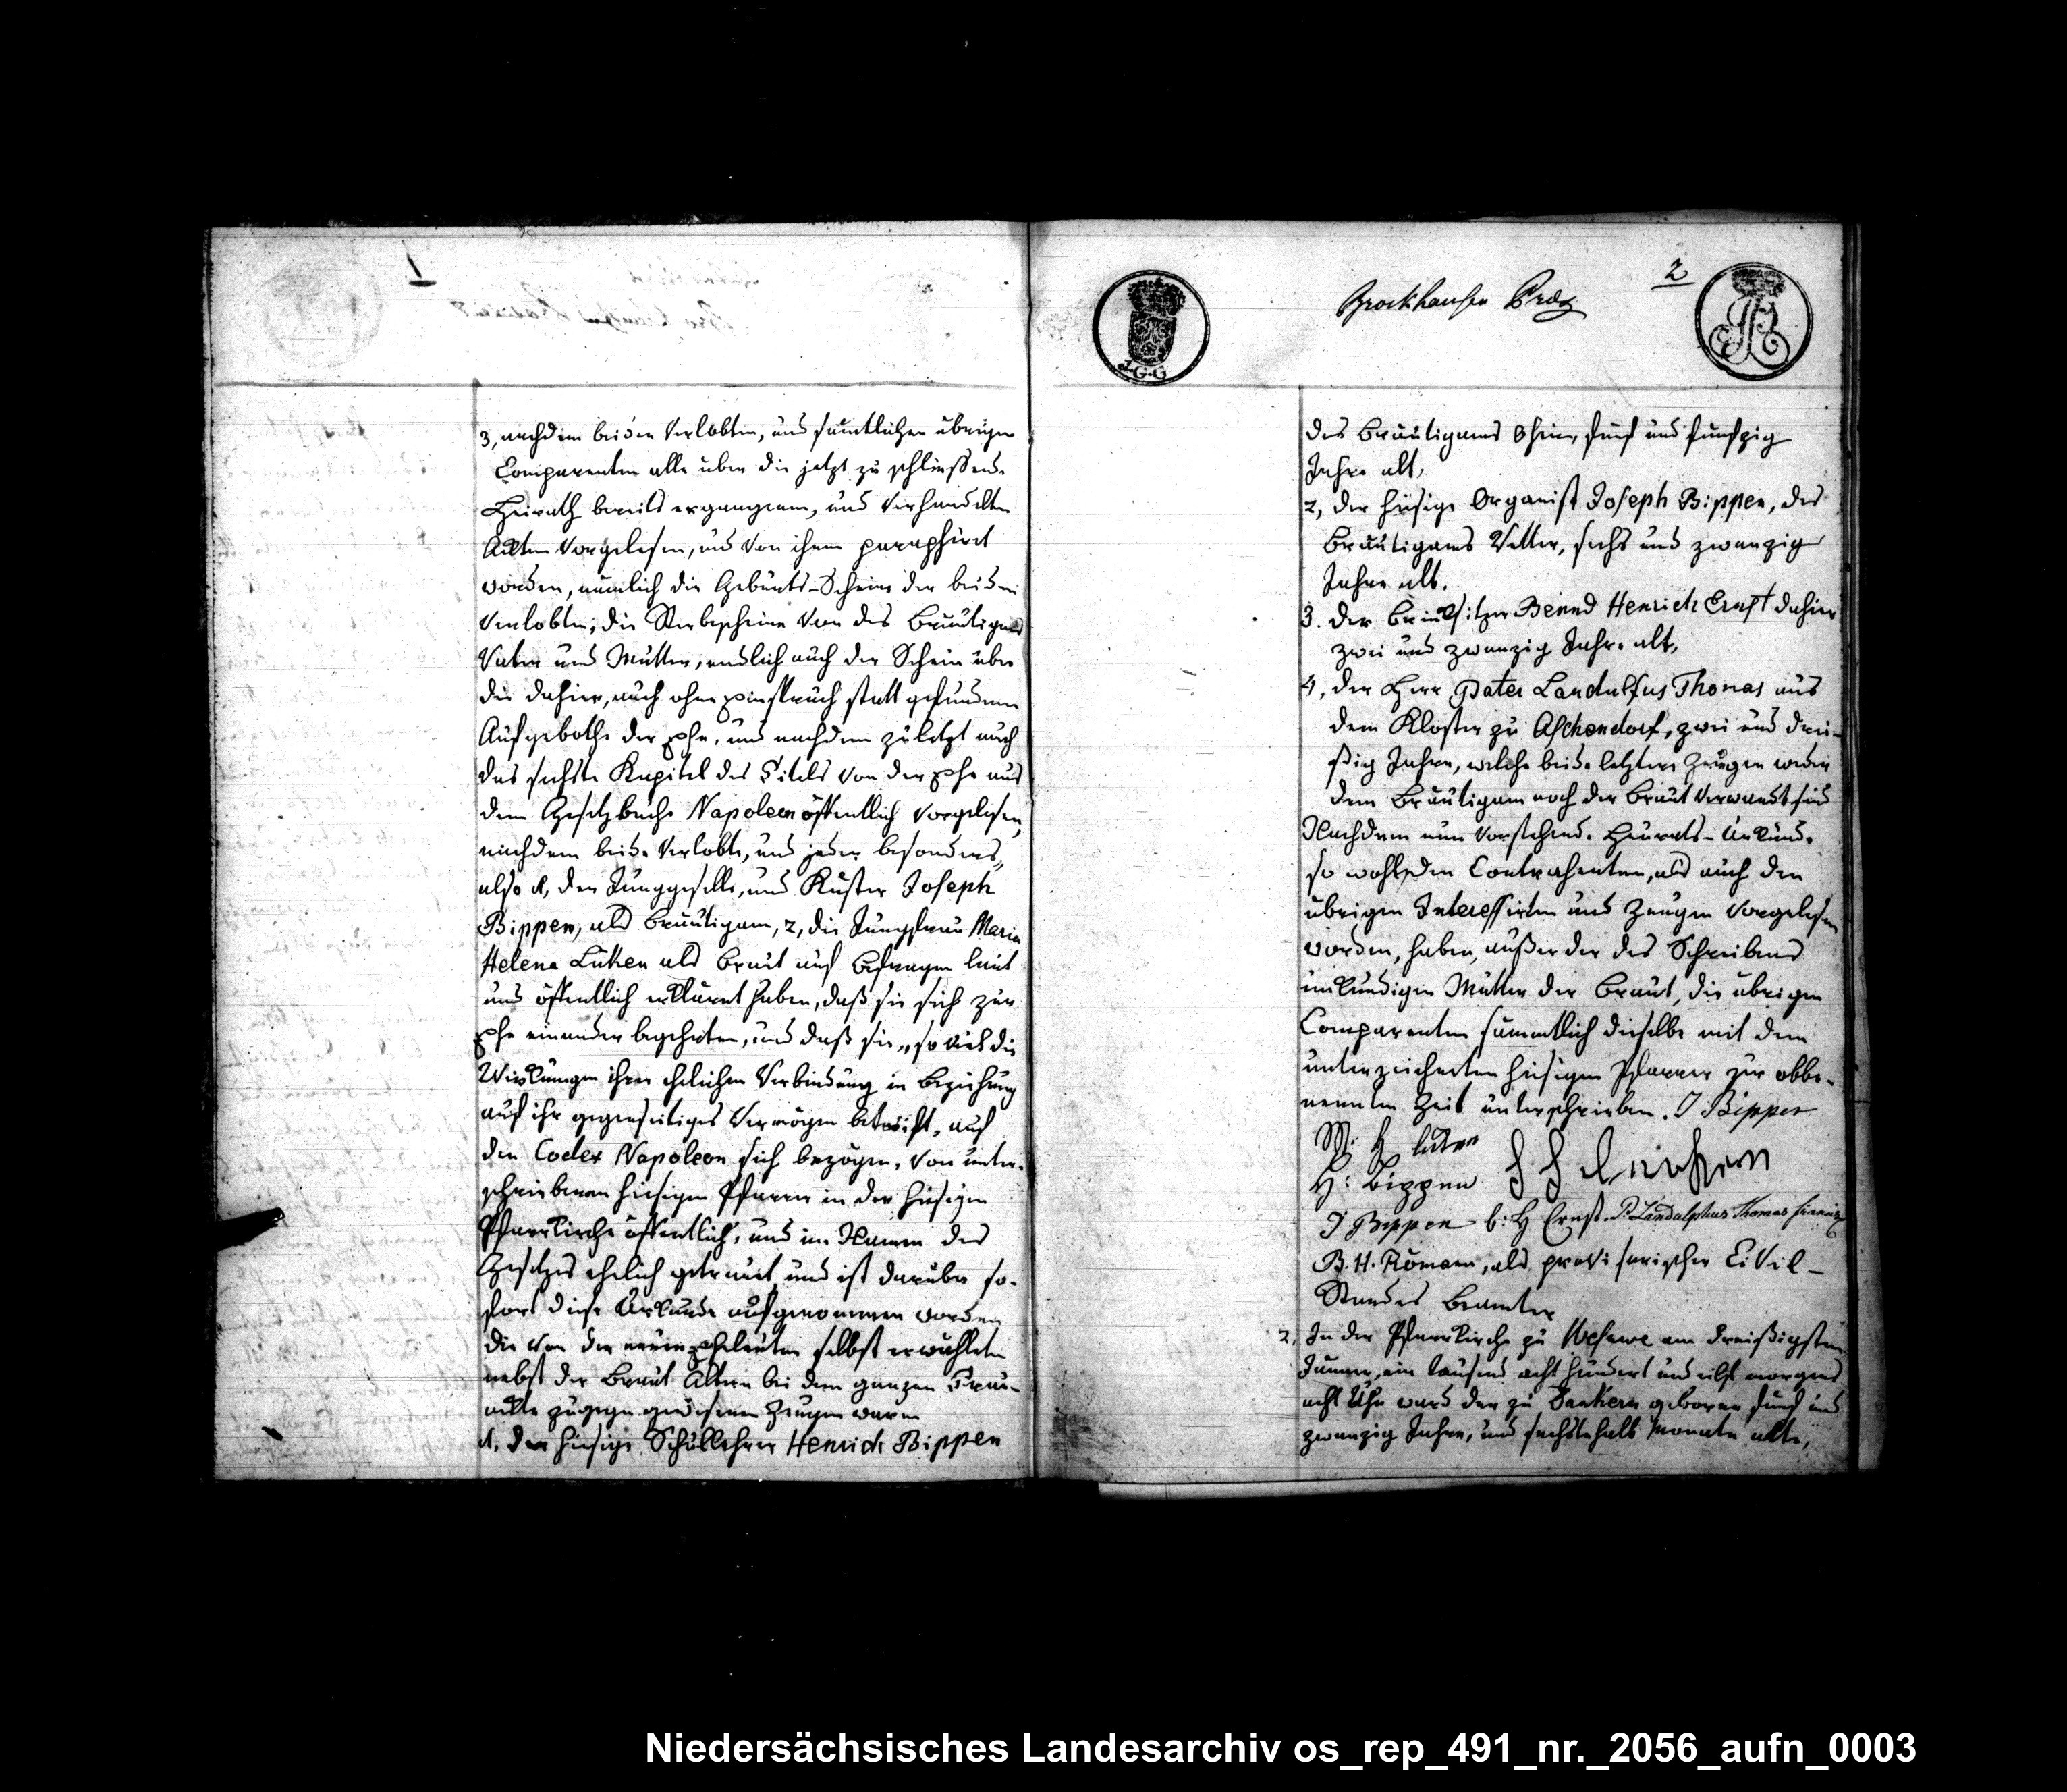 1
3, nachdem beiden Verlobten, und sämtlichen übrigen
Comparenten alle über die jetzt zu schließende
Heirath bereits ergangenen, und verhandelten
Ackten vorgelesen, und von ihnen paraphirt
worden, nämlich die Geburts-Scheine der beiden
Verlobten; die Sterbescheine von des Bräutigams
Vater und Mutter, endlich auch der Schein über
die dahier, auch ohne Einspruch statt gefundenen
Aufgebothe der Ehe, und nachdem zuletzt auch
das sechste Kapitel des Titels von der Ehe aus
dem Gesetzbuche Napoleon öffentlich vorgelesen,
nachdem beide Verlobte, und jeder besonders,
also 1, der Junggeselle, und Küster Joseph
Bippen, als Bräutigam, 2, die Jungfrau Maria
Helena Lüken als Braut auf Befragen laut
und öffentlich erklärt haben, daß sie sich zur
Ehe einander begehrten, und daß sie, so viel die
Wirkungen ihrer ehelichen Verbindung in Beziehung
auf ihr gegenseitiges Vermögen betreift, auf
den Codex Napoleon sich bezögen, von unter-
schriebenen hiesigen Pfarrer in der hiesigen
Pfarrkirche öffentlich, und im Namen des
Gesetzes ehelich getrauet und ist darüber so-
fort diese Urkunde aufgenommen worden
die von den neuen Eheleuten selbst erwählten
nebst der Braut Altern bei dem ganzen Trau-
ackte zugegen gewesenen Zeugen waren
1, der hiesige Schullehrer Henrich Bippen
J.G.G
Brockhausen
2
des Bräutigams Ohein, fünf und funfzig
Jahre alt,
2, der hiesige Organist Joseph Bippen, des
Bräutigams Vetter, sechs und zwanzig
Jahre alt.
3. der Brinksitzer Bernd Henrich Ernst dahier
zwei und zwanzig Jahre alt,
4, der Herr Pater Landulfus Thomas aus
dem Kloster zu Aschendorf, zwei und drei-
ßig Jahre, welche beide letztere Zeugen weder
dem Bräutigam noch der Braut verwandt sind
Nachdem nun vorstehende Heurats-Urkunde
so wohl den Contrahenten, als auch den
übrigen Interessirten und Zeugen vorgelesen
worden, haben, außer der des Schreibens
unkundigen Mutter der Braut, die übrigen
Comparenten sämmtlich dieselbe mit dem
unterzeichneten hiesigen Pfarrer zur obbe-
nennten Zeit unterschrieben. J Bippen
M. H lüken
H: Bippen
J Bippen b: H Ernst. P. Landulphus Thomas
B. H. Römann, als provisorischer Civil-
Standes Beamter
2. In der Pfarrkirche zu Wesuwe am dreißigsten
Januar, ein tausend acht hundert und eilf morgens
acht Uhr ward der zu Dankern geboren fünf und
zwanzig Jahre, und sechstehalb Monate alte,
Niedersächsisches Landesarchiv os_rep_491_nr._2056_aufn_0003